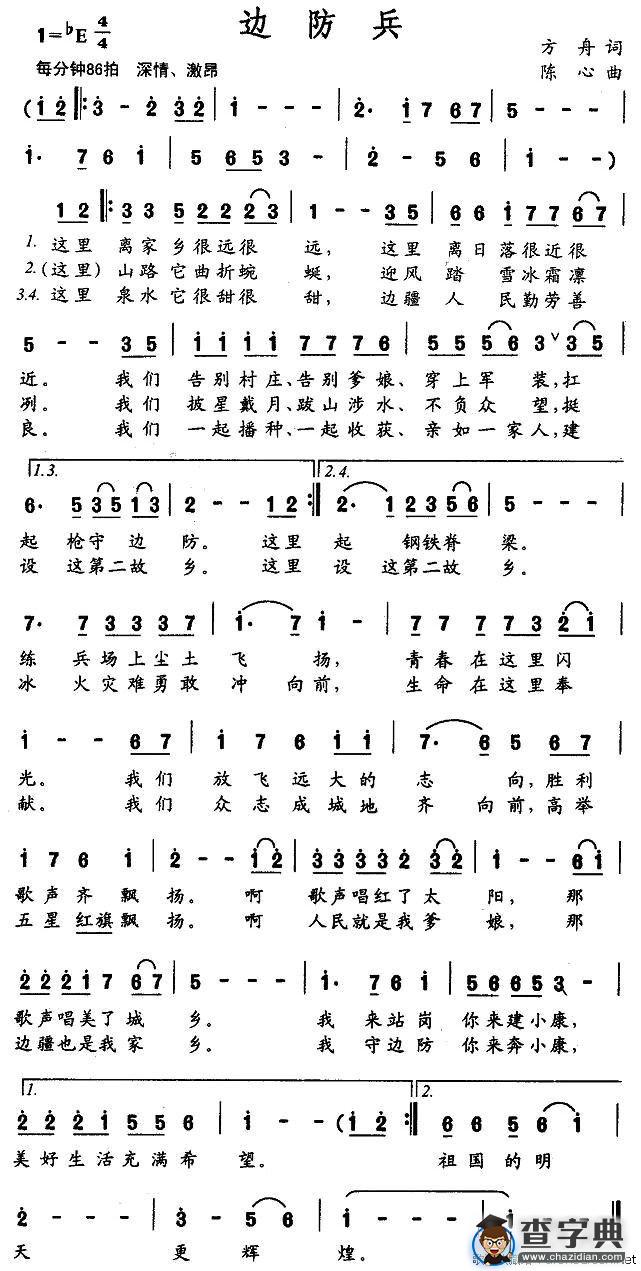 边防兵
1=♭E 4/4
方舟词
每分钟86拍 深情、激昂
陈心曲
(i̇ 2̇ ‖: 3̇ - 2̇ - | i̇ - - - | 2̇· i̇ 7 6 7 | 5 - - - |
i̇· 7 6 i̇ | 5 6 5 3 - | 2 - 5 6 | i̇ - - )
1 2 ‖: 3 3 5 2 2 2 3 | 1 - - 3 5 | 6 6 i̇ 7 7 6 7 |
1. 这里 离家乡很远很 远, 这里 离日落很近很
2.(这里) 山路它曲折蜿 蜒, 迎风踏 雪冰霜凛
3.4. 这里 泉水它很甜很 甜, 边疆人 民勤劳善
5 - - 3 5 | i̇ i̇ i̇ i̇ 7 7 7 6 | 5 5 5 6 3 ∨ 3 5 |
近。 我们 告别村庄、告别爹娘、穿上军 装,扛
冽。 我们 披星戴月、跋山涉水、不负众 望,挺
良。 我们 一起播种、一起收获、亲如一家人,建
1.3. 2.4.
6· 5 3 5 1 3 | 2 - - 1 2 :‖ 2· 1 2 3 5 6 | 5 - - - |
起 枪守边 防。 这里 起 钢铁脊 梁。
设 这第二故 乡。 这里 设 这第二故 乡。
7· 7 3 3 3 7 | i̇· 7 i̇ - | 7 7 7 7 7 3 2̇ i̇ |
练 兵场上尘土 飞 扬, 青春在这里闪
冰 火灾难勇敢 冲 向前, 生命在这里奉
i̇ - - 6 7 | i̇ 7 6 i̇ i̇ | 7· 6 5 6 7 |
光。 我们 放飞远大的 志 向,胜利
献。 我们 众志成城地 齐 向前,高举
i̇ 7 6 i̇ | 2̇ - - i̇ 2̇ | 3̇ 3̇ 3̇ 3̇ 2̇ 3̇ 2̇ | i̇ - - 6 i̇ |
歌声齐飘 扬。 啊 歌声唱红了太 阳, 那
五星红旗飘 扬。 啊 人民就是我爹 娘, 那
2̇ 2̇ 2̇ i̇ 7 6 7 | 5 - - - | i̇· 7 6 i̇ | 5 6 6 5 3 - |
歌声唱美了城 乡。 我 来站岗 你来建小康,
边疆也是我家 乡。 我 守边防 你来奔小康,
1. 2.
2̇ 2̇ 2̇ i̇ 5 5 6 | i̇ - - (i̇ 2̇ :‖ 6 6 5 6 i̇ |
美好生活充满希 望。 祖国的明
2̇ - - - | 3̇ - 5 6 | i̇ - - - | i̇
天 更辉 煌。
查字典
www.chazidian.com